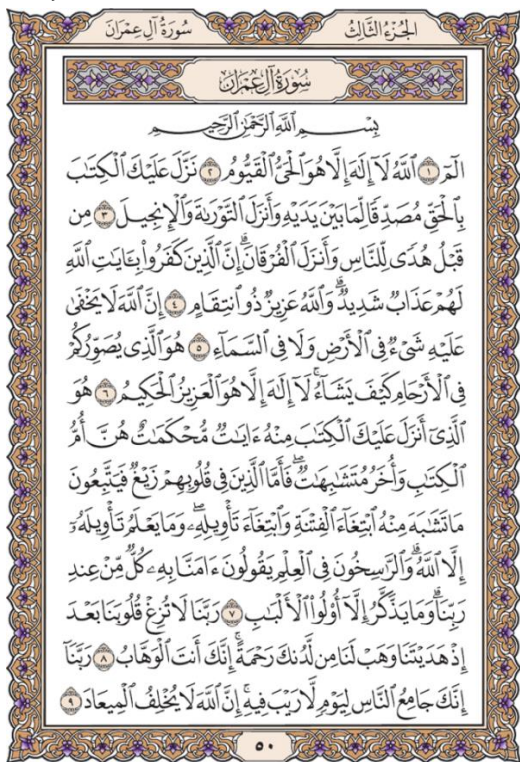 سُورَةُ آلِ عِمْرَانَ
الجُزْءُ الثَّالِثُ
سُورَةُ آلِ عِمْرَانَ
بِسْمِ اللَّهِ الرَّحْمَٰنِ الرَّحِيمِ
الٓمٓ ١ ٱللَّهُ لَآ إِلَٰهَ إِلَّا هُوَ ٱلْحَىُّ ٱلْقَيُّومُ ٢ نَزَّلَ عَلَيْكَ ٱلْكِتَٰبَ
بِٱلْحَقِّ مُصَدِّقًا لِّمَا بَيْنَ يَدَيْهِ وَأَنزَلَ ٱلتَّوْرَىٰةَ وَٱلْإِنجِيلَ ٣ مِن
قَبْلُ هُدًى لِّلنَّاسِ وَأَنزَلَ ٱلْفُرْقَانَ ۗ إِنَّ ٱلَّذِينَ كَفَرُوا۟ بِـَٔايَٰتِ ٱللَّهِ
لَهُمْ عَذَابٌ شَدِيدٌ ۗ وَٱللَّهُ عَزِيزٌ ذُو ٱنتِقَامٍ ٤ إِنَّ ٱللَّهَ لَا يَخْفَىٰ
عَلَيْهِ شَىْءٌ فِى ٱلْأَرْضِ وَلَا فِى ٱلسَّمَآءِ ٥ هُوَ ٱلَّذِى يُصَوِّرُكُمْ
فِى ٱلْأَرْحَامِ كَيْفَ يَشَآءُ ۚ لَآ إِلَٰهَ إِلَّا هُوَ ٱلْعَزِيزُ ٱلْحَكِيمُ ٦ هُوَ
ٱلَّذِىٓ أَنزَلَ عَلَيْكَ ٱلْكِتَٰبَ مِنْهُ ءَايَٰتٌ مُّحْكَمَٰتٌ هُنَّ أُمُّ
ٱلْكِتَٰبِ وَأُخَرُ مُتَشَٰبِهَٰتٌ ۖ فَأَمَّا ٱلَّذِينَ فِى قُلُوبِهِمْ زَيْغٌ فَيَتَّبِعُونَ
مَا تَشَٰبَهَ مِنْهُ ٱبْتِغَآءَ ٱلْفِتْنَةِ وَٱبْتِغَآءَ تَأْوِيلِهِۦ ۗ وَمَا يَعْلَمُ تَأْوِيلَهُۥٓ
إِلَّا ٱللَّهُ ۗ وَٱلرَّٰسِخُونَ فِى ٱلْعِلْمِ يَقُولُونَ ءَامَنَّا بِهِۦ كُلٌّ مِّنْ عِندِ
رَبِّنَا ۗ وَمَا يَذَّكَّرُ إِلَّآ أُو۟لُوا۟ ٱلْأَلْبَٰبِ ٧ رَبَّنَا لَا تُزِغْ قُلُوبَنَا بَعْدَ
إِذْ هَدَيْتَنَا وَهَبْ لَنَا مِن لَّدُنكَ رَحْمَةً ۚ إِنَّكَ أَنتَ ٱلْوَهَّابُ ٨ رَبَّنَآ
إِنَّكَ جَامِعُ ٱلنَّاسِ لِيَوْمٍ لَّا رَيْبَ فِيهِ ۚ إِنَّ ٱللَّهَ لَا يُخْلِفُ ٱلْمِيعَادَ ٩
٥٠